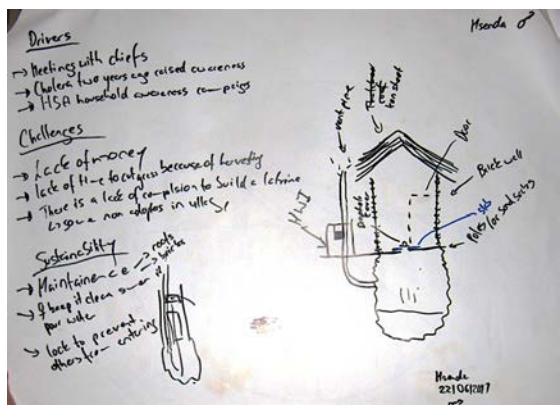 Msenda ♂
Drivers
→ Meetings with chiefs
→ Cholera two years ago raised awareness
→ HSA household awareness campaigns
Challenges
→ Lack of money
→ lack of time to
because of harvesting
→ There is a lack of compulsion to build a latrine
so some non adopters in village
Sustainability
→ Maintainence
→ roofs
→ bricks
→ keep it clean
pour water
→ lock to prevent
others from entering
vent pipe
roof
iron sheet
Door
Brick wall
HWF
cover
slab
Poles
Msenda
22/06/2017